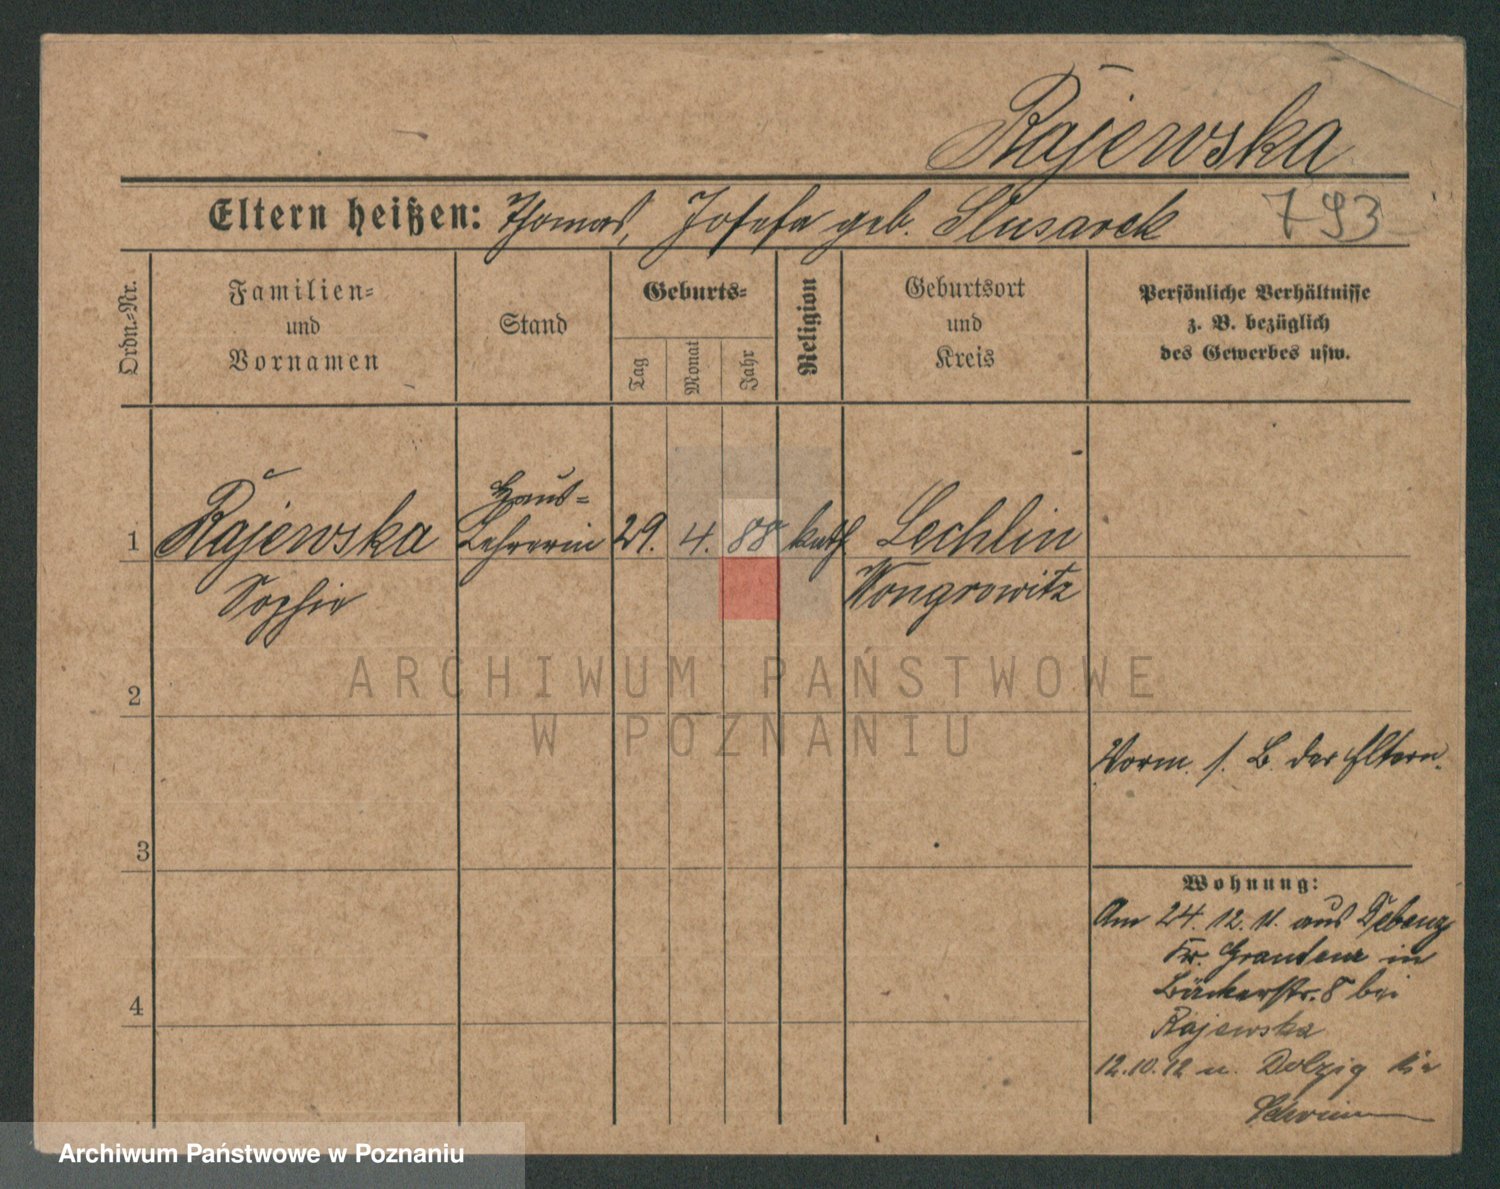 Rajewska
Eltern heißen: Thomas, Josefa geb. Slusarek 793
Ordn.-Nr.
Familien-
und
Vornamen
Stand
Geburts-
Tag
Monat
Jahr
Religion
Geburtsort
und
Kreis
Persönliche Verhältnisse
z. B. bezüglich
des Gewerbes usw.
Haus-
1 Rajewska Lehrerin 29. 4. 88 kath Lechlin
Sophie Wongrowitz
ARCHIWUM PAŃSTWOWE
2
W POZNANIU
Vorm. s. B. der Eltern.
3
Wohnung:
Am 24. 12. 11. aus Debenz
Kr. Graudenz in
Bäckerstr. 8 bei
4
Rajewska
12.10.12 n. Dolzig
Archiwum Państwowe w Poznaniu